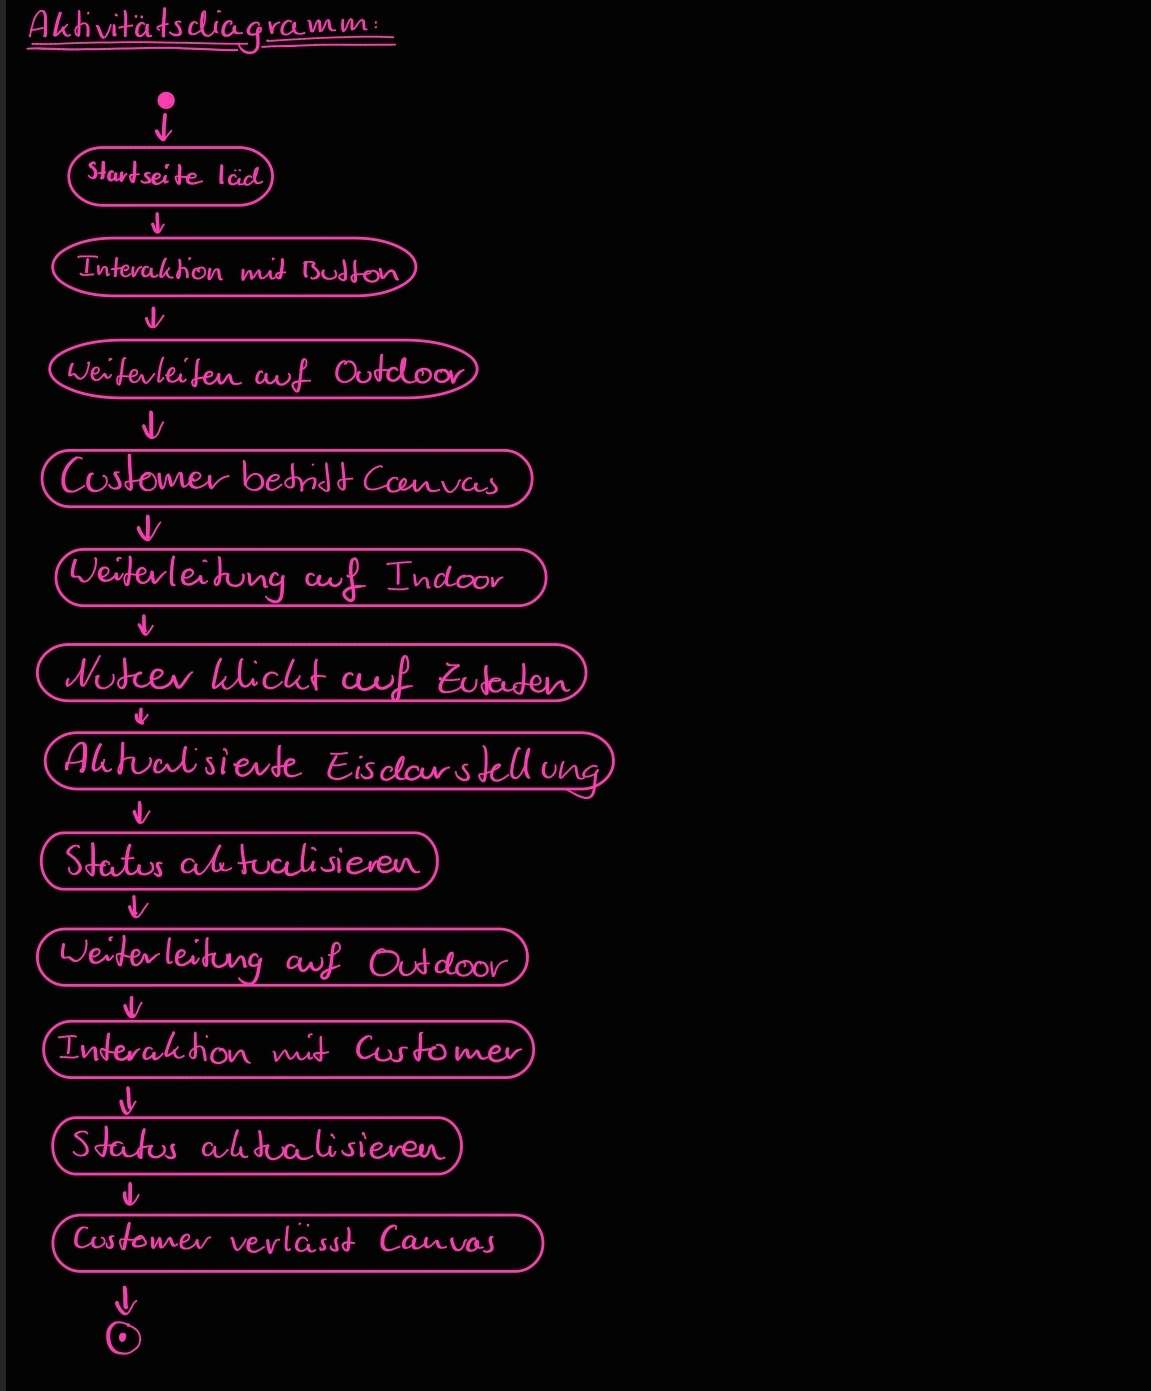 Aktivitätsdiagramm:
Startseite läd
Interaktion mit Button
Weiterleiten auf Outdoor
Customer betritt Canvas
Weiterleitung auf Indoor
Nutzer klickt auf Zutaten
Aktualisierte Eisdarstellung
Status aktualisieren
Weiterleitung auf Outdoor
Interaktion mit Customer
Status aktualisieren
Customer verlässt Canvas